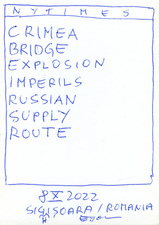 NYTIMES
CRIMEA
BRIDGE
EXPLOSION
IMPERILS
RUSSIAN
SUPPLY
ROUTE
8 X 2022
SIGIȘOARA / ROMANIA